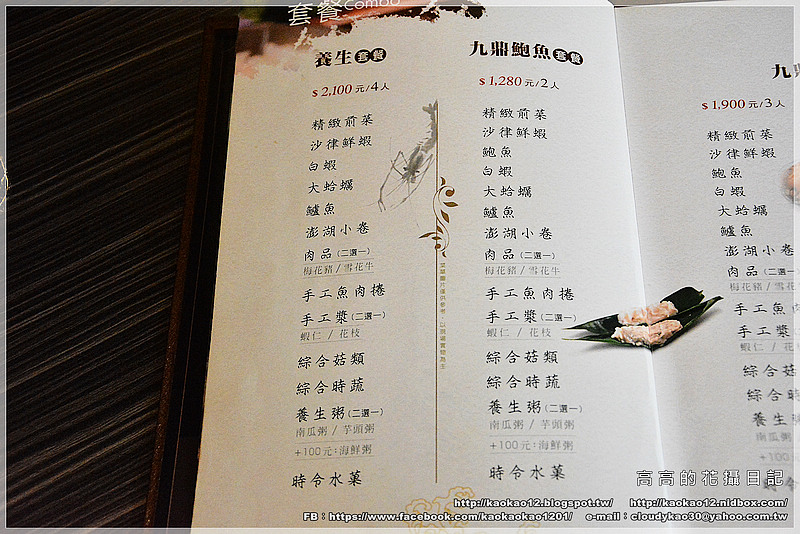 套餐Combo
養生套餐
$2,100元/4人
精緻前菜
沙律鮮蝦
白蝦
大蛤蠣
鱸魚
澎湖小卷
肉品(二選一)
梅花豬/雪花牛
手工魚肉捲
手工漿(二選一)
蝦仁 / 花枝
綜合菇類
綜合時蔬
養生粥(二選一)
南瓜粥 / 芋頭粥
+100元:海鮮粥
時令水菓
菜單圖片僅供參考,以現場實物為主
九鼎鮑魚套餐
$1,280元/2人
精緻前菜
沙律鮮蝦
鮑魚
白蝦
大蛤蠣
鱸魚
澎湖小卷
肉品(二選一)
梅花豬/雪花牛
手工魚肉捲
手工漿(二選一)
蝦仁 / 花枝
綜合菇類
綜合時蔬
養生粥(二選一)
南瓜粥 / 芋頭粥
+100元:海鮮粥
時令水菓
九
$1,900元/3人
精緻前菜
沙律鮮蝦
鮑魚
白蝦
大蛤蠣
鱸魚
澎湖小卷
肉品(二選一)
梅花豬/雪花
手工魚肉
手工漿(二
蝦仁 / 花
綜合菇
綜合時
養生粥
南瓜粥
+100元
時令水菓
高高的花攝日記
http://kaokao12.blogspot.tw/ http://kaokao12.nidbox.com/
FB:https://www.facebook.com/kaokaokao1201/ e-mail:cloudykao30@yahoo.com.tw